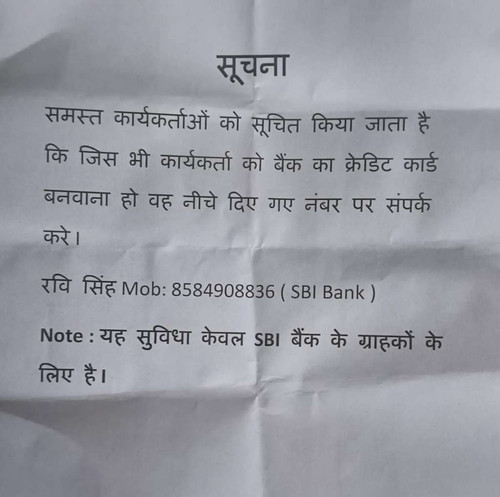 सूचना
समस्त कार्यकर्ताओं को सूचित किया जाता है
कि जिस भी कार्यकर्ता को बैंक का क्रेडिट कार्ड
बनवाना हो वह नीचे दिए गए नंबर पर संपर्क
करे।
रवि सिंह Mob: 8584908836 ( SBI Bank )
Note : यह सुविधा केवल SBI बैंक के ग्राहकों के
लिए है।